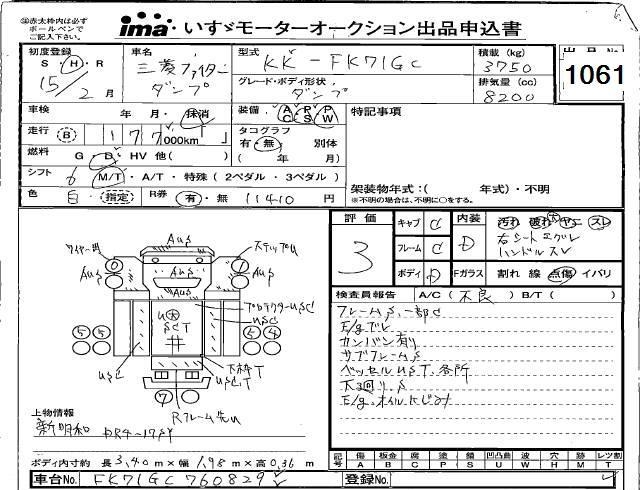 ※赤太枠内は必ず
ボールペンで
ご記入下さい。
ima いすゞモーターオークション出品申込書
初度登録
S・H・R
15/2月
車名
三菱ファイター
ダンプ
型式
KK-FK71GC
グレード・ボディ形状
ダンプ
積載(kg)
3750
排気量(cc)
8200
1061
車検 年 月・抹消
走行 B 177,000km
装備 AC PS PW
タコグラフ
有・無 別体
( 年 月)
特記事項
燃料 G・D・HV 他( )
シフト 6 M/T・A/T・特殊(2ペダル・3ペダル)
色 白・指定 R券 有・無 11410円
架装物年式:( 年式)・不明
※不明の場合は、不明に○をする。
評価
3
キャブ C
フレーム C
ボディ D
内装 D
汚れ 破れ ヤニ スレ
右シートエグレ
ハンドルスレ
Fガラス 割れ 線 点傷 イバリ
検査員報告 A/C(不良) B/T( )
フレームS、一部C
E/gプレ
カンバン有り
サブフレームS
ベッセルUST、各所
下3回りS
E/g、オイルにじみ
ワイヤー凹
AuS
ステップU
AuS
AuS
AuS
AuS
プロテクターUSC
USC
U大
SCT
USC
下枠T
USCT
Rフレーム先U
上物情報
新明和
ボディ内寸約 長3.40m×幅1.98m×高0.36m
車台No. FK71GC760829
登録No.
記号 傷A 板金B 腐C 塗P 錆S 凹凸曲U 波W 穴H 跡M レツ割T